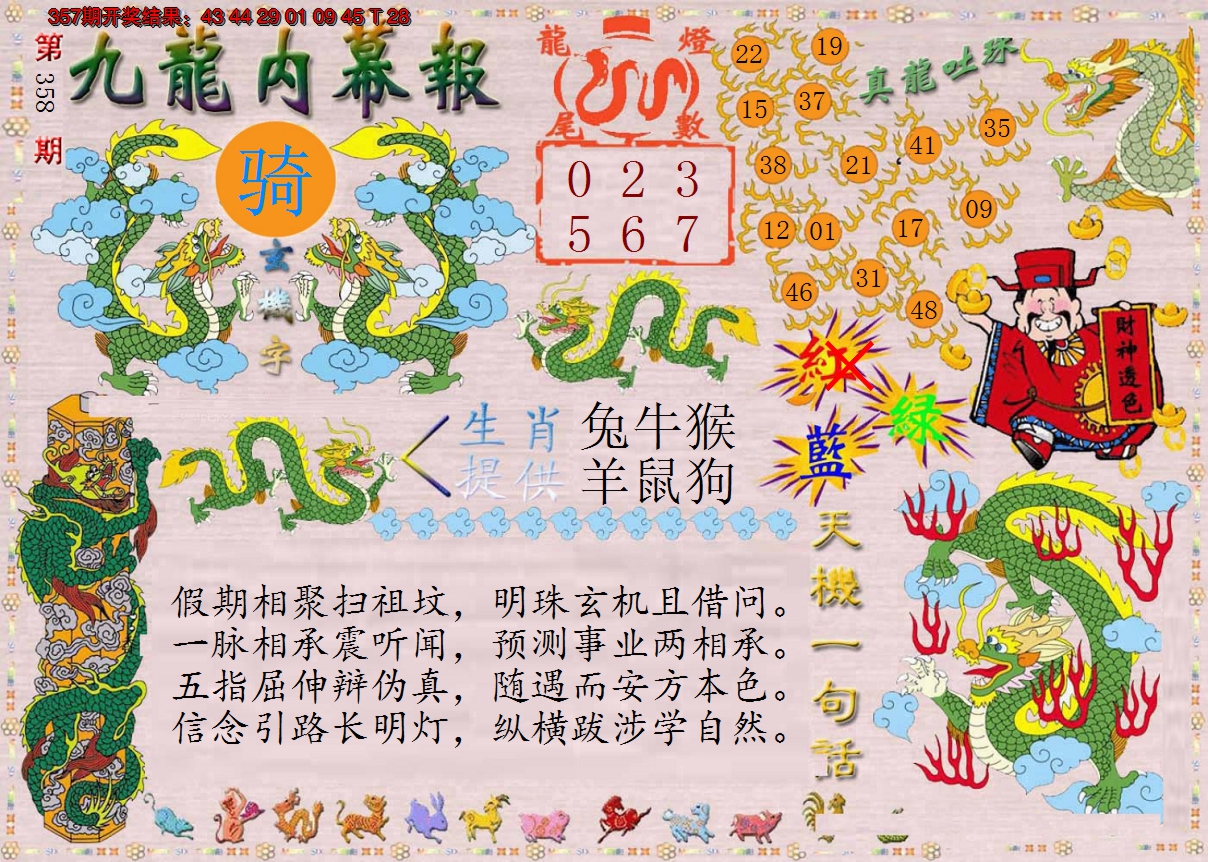 357期开奖结果：43 44 29 01 09 45 T 28
第358期
九龍内幕報
骑
玄機字
龍燈
尾數
0 2 3
5 6 7
真龍吐珠
22 19
15 37
38 21 41 35
12 01 17 09
46 31 48
財神透色
紅
綠
藍
生肖 兔牛猴
提供 羊鼠狗
天機一句話
假期相聚扫祖坟，明珠玄机且借问。
一脉相承震听闻，预测事业两相承。
五指屈伸辩伪真，随遇而安方本色。
信念引路长明灯，纵横跋涉学自然。